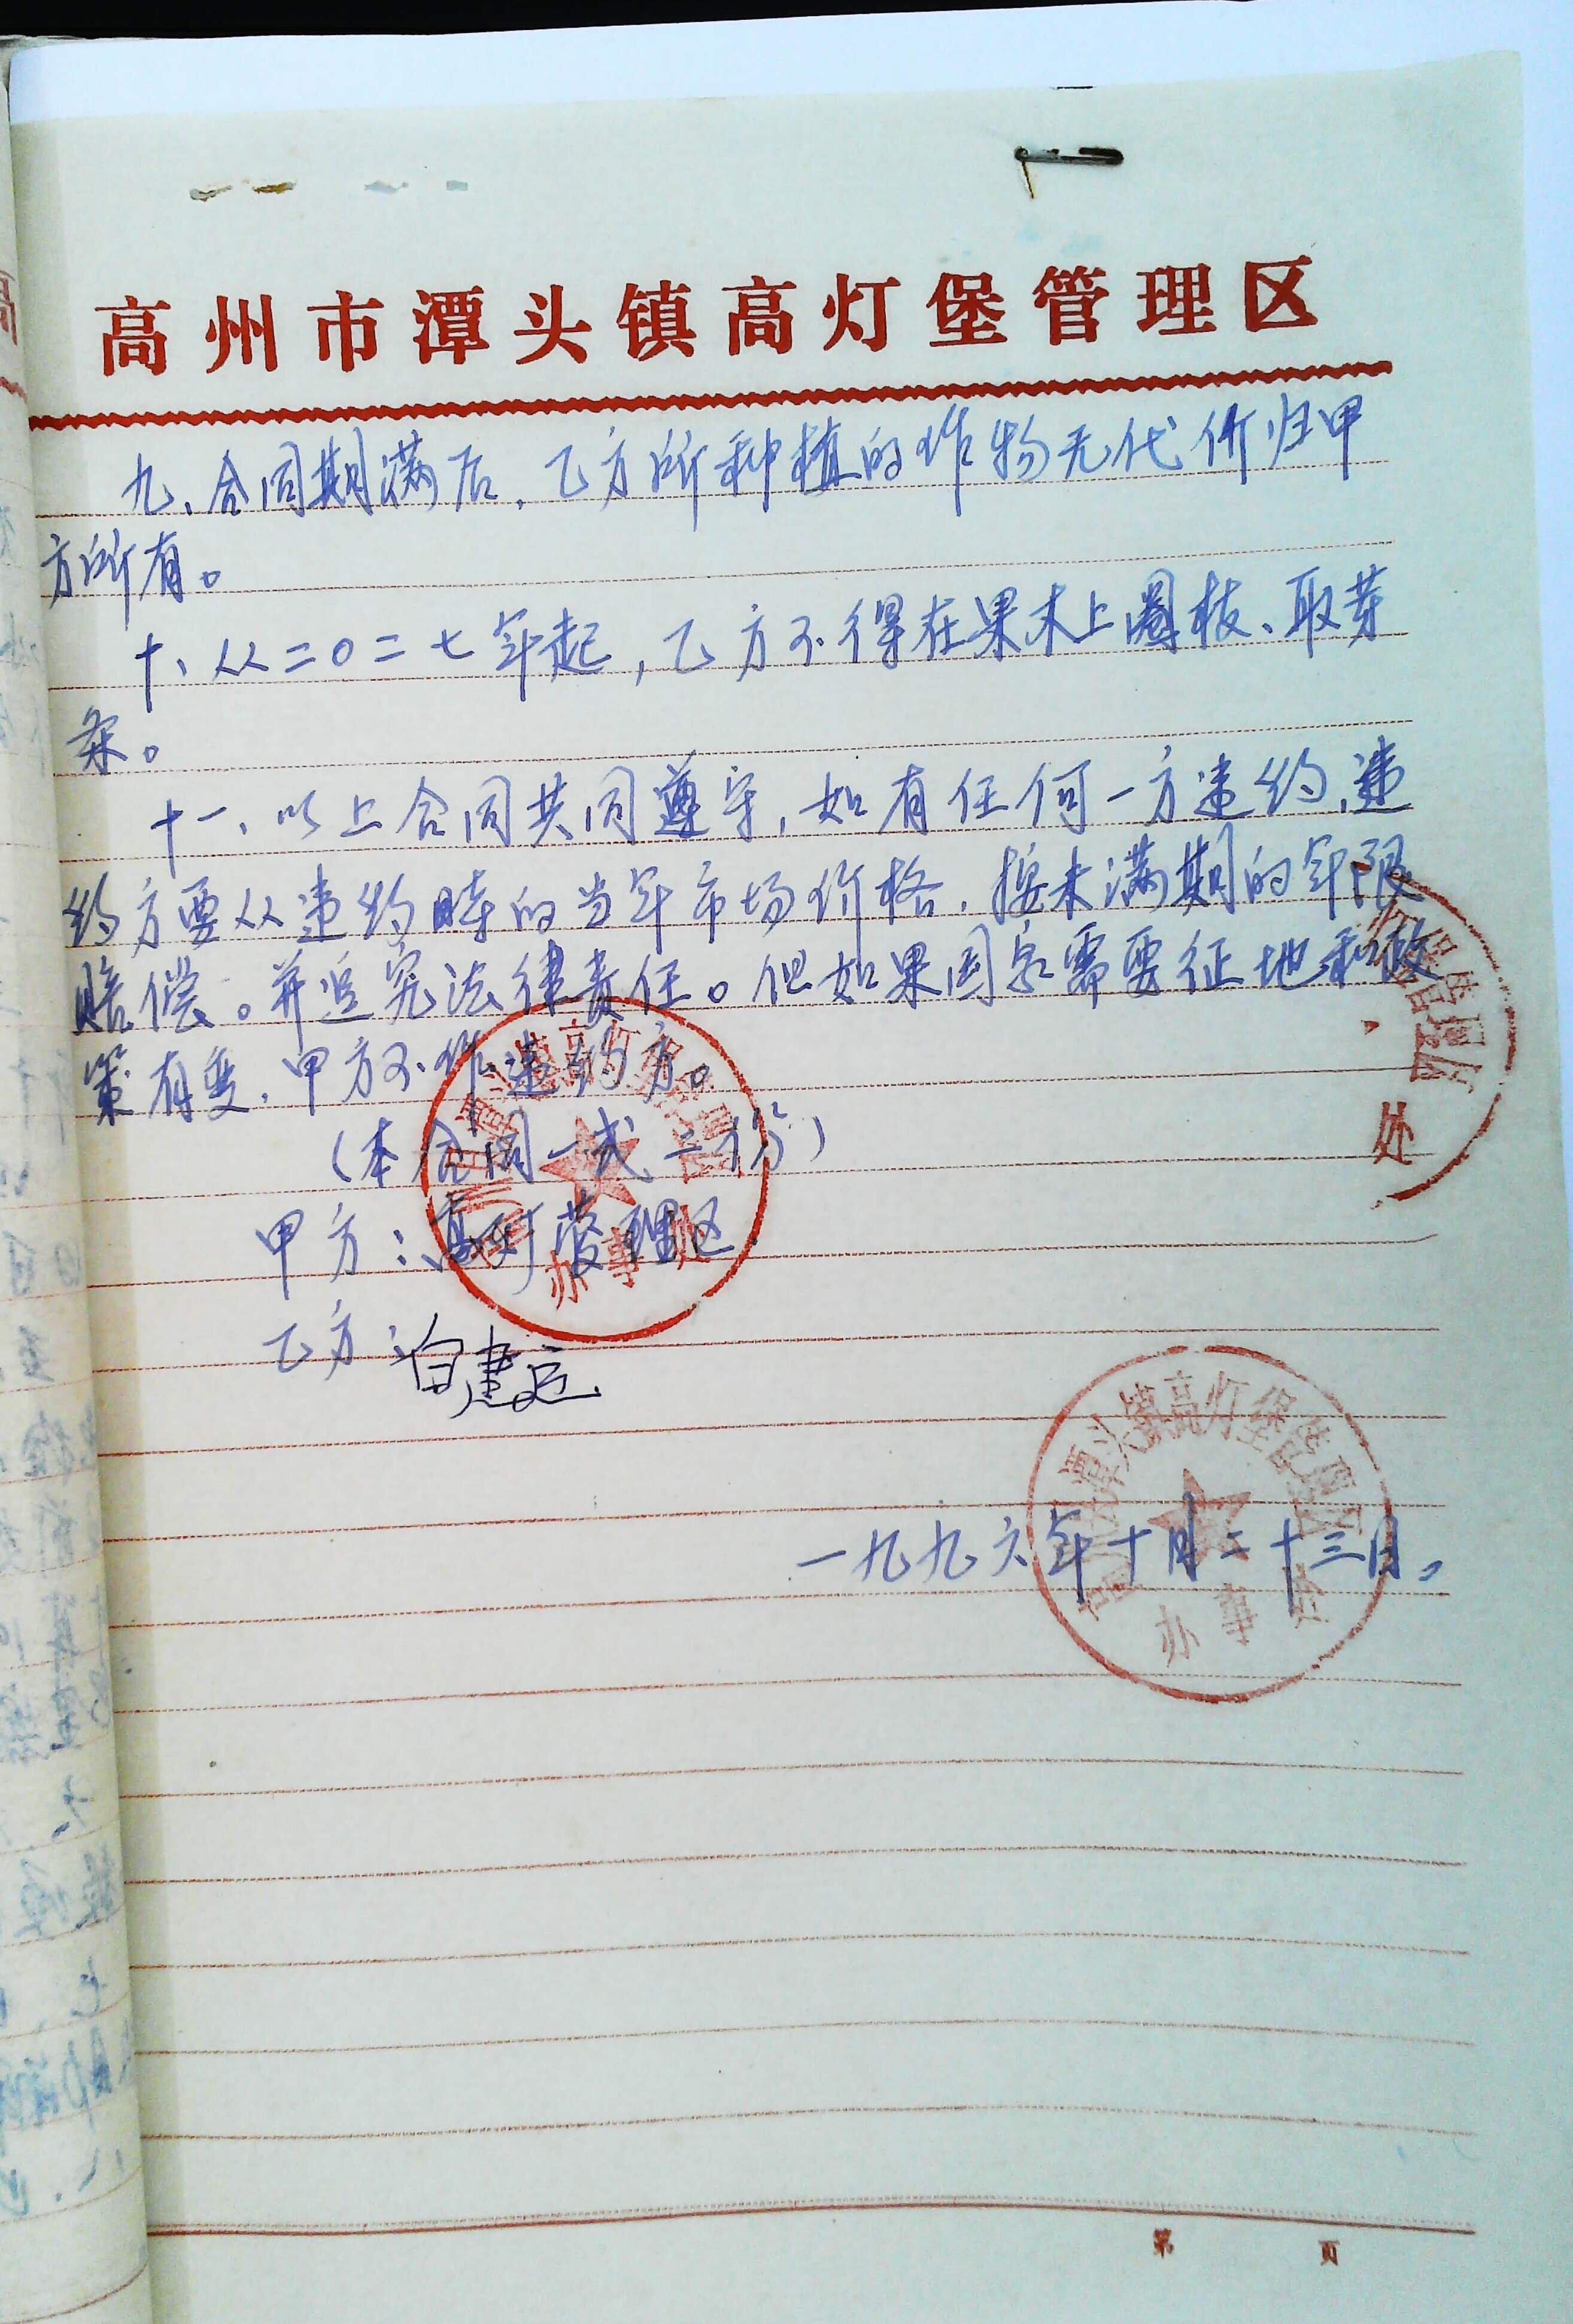 高州市潭头镇高灯堡管理区
九、合同期满后，乙方所种植的作物无代价归甲
方所有。
十、从二〇二七年起，乙方不得在果木上圈枝、取芽
条。
十一、以上合同共同遵守，如有任何一方违约，违
约方要从违约时的当年市场价格，按未满期的年限
赔偿。并追究法律责任。但如果国家需要征地和政
策有变，甲方不作违约方。
（本合同一式二份）
甲方：高灯管理区
乙方：白建运
一九九六年十月二十三日。
潭头镇高灯堡管理区
办事处
堡管理区
处
潭头镇高灯堡管理区
办事处
第 页